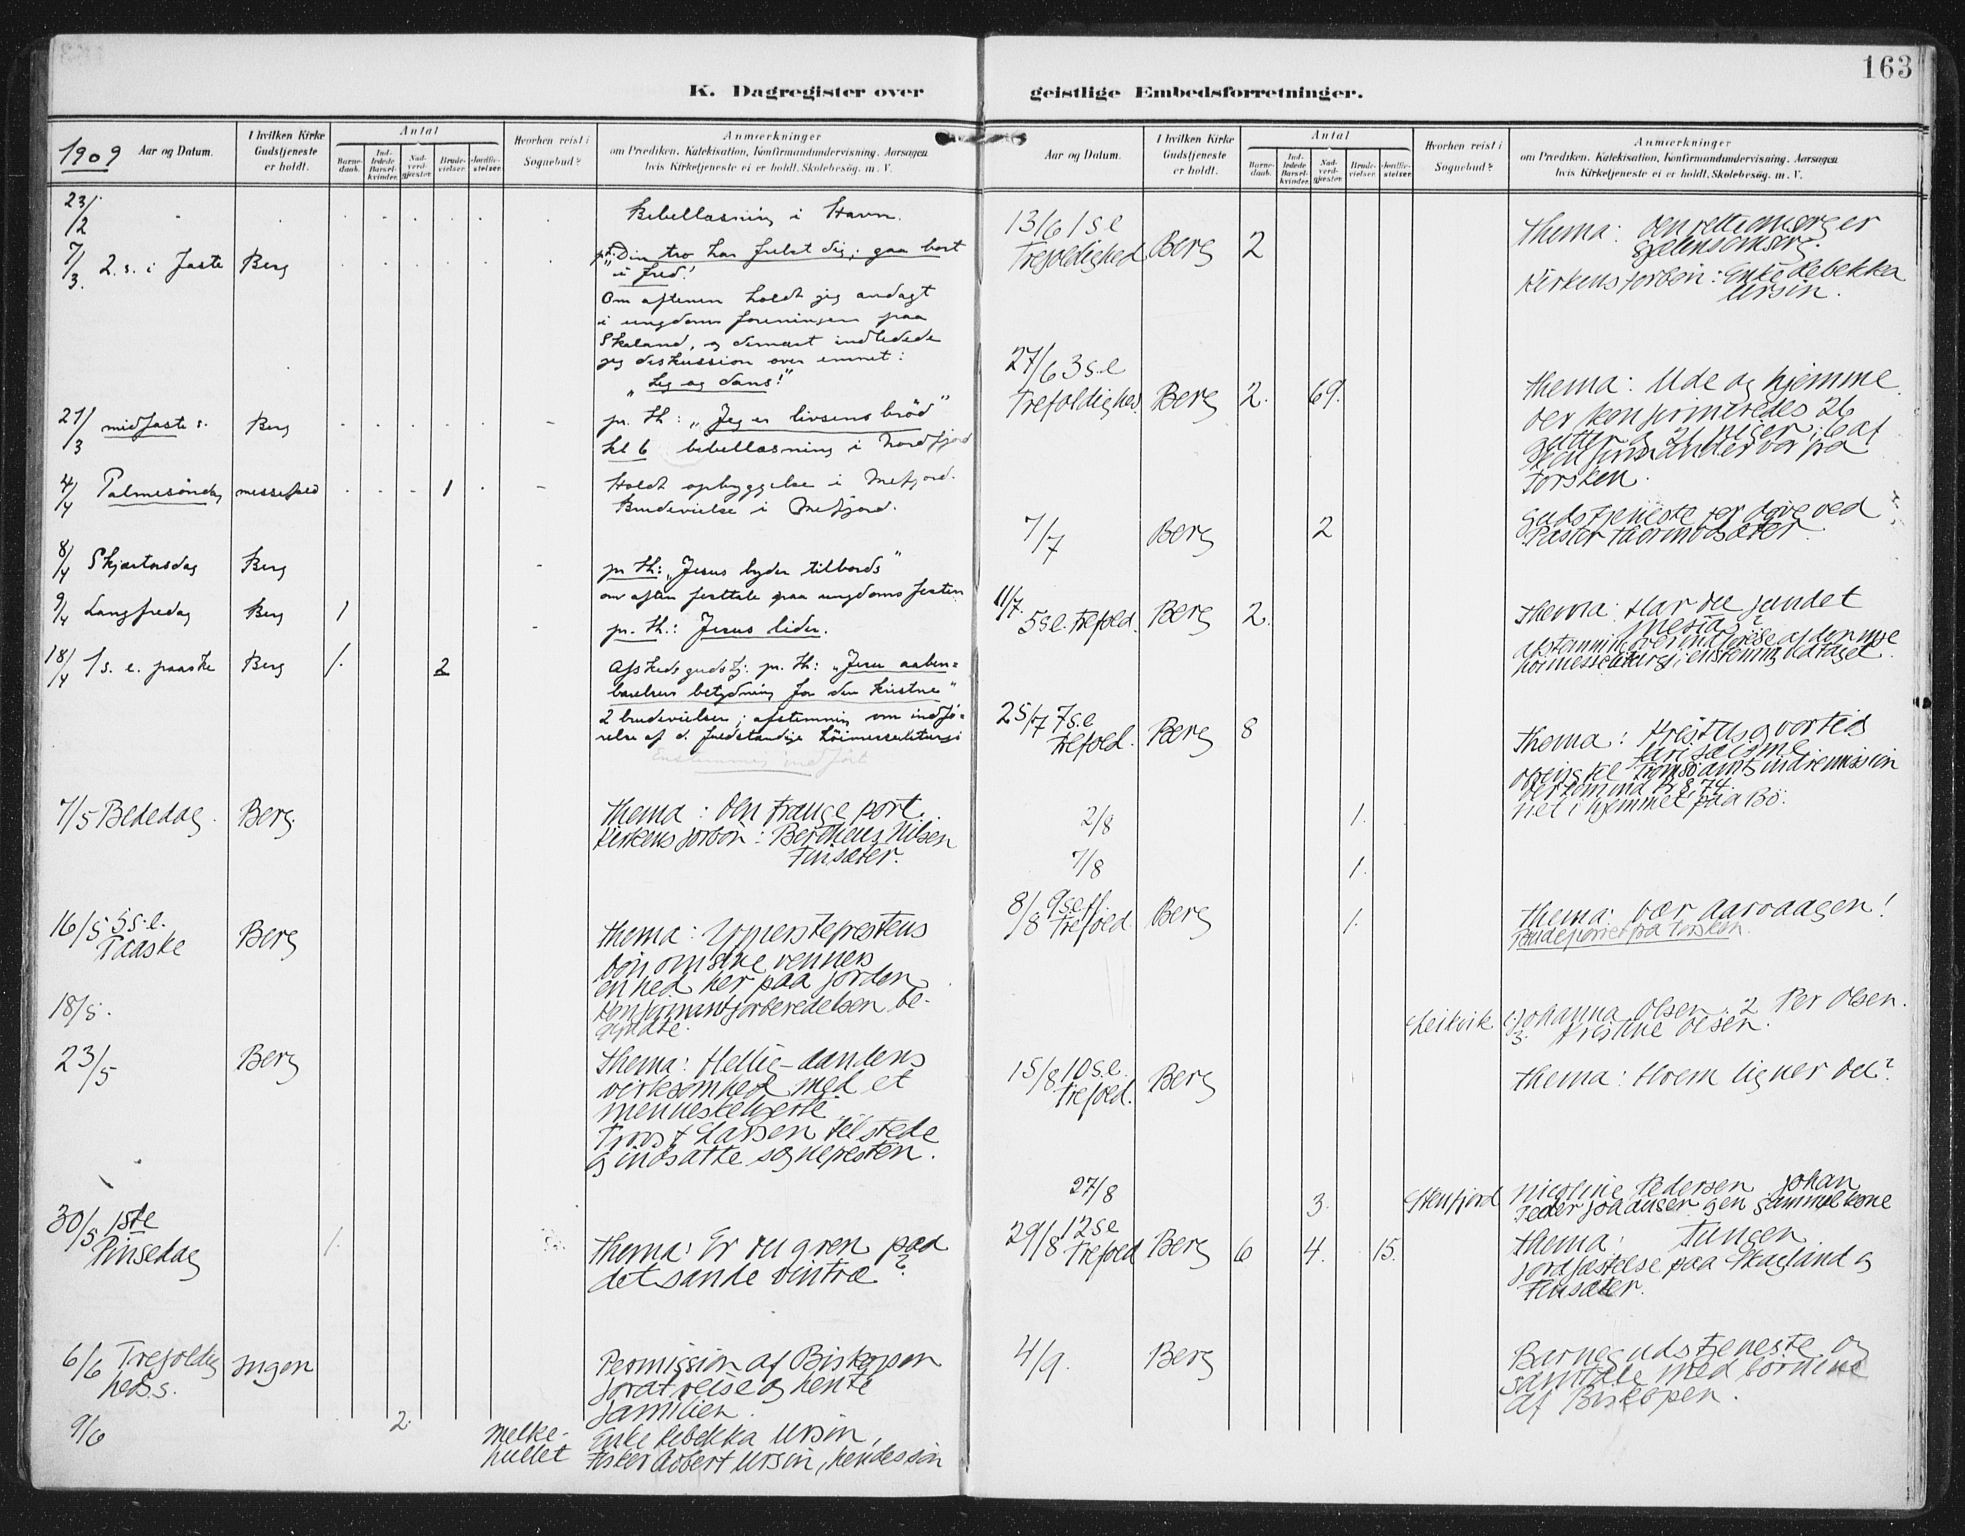 163
K. Dagregister over geistlige Embedsforretninger.
1909
Aar og Datum.
I hvilken Kirke Gudstjeneste er holdt.
Antal
Barne-daab.
Ind-ledede Barsel-kvinder.
Nad-verd-gjester.
Brude-vielser.
Jordfæ-stelser.
Hvorhen reist i Sognebud?
Anmærkninger
om Prædiken, Katekisation, Konfirmandundervisning, Aarsagen
hvis Kirketjeneste ei er holdt, Skolebesøg, m. V.
23/2 Bibellæsning i Havn.
7/3. 2. s. i Faste Berg pr. "Din tro har frelst dig; gaa bort
i fred!"
Om aftenen holdt jeg andagt
i ungdoms foreningen paa
Skaland, og dernæst indledede
jeg diskussion over emnet:
"Leg og dans!"
21/3 midfaste s. Berg - pr. th: "Jeg er livsens brød"
kl 6 bibellæsning i Nordfjord
4/4 Palmesøndag messefald 1 - Holdt opbyggelse i Mefjord.
Brudevielse i Mefjord.
8/4 Skjærtorsdag Berg - pr. th: "Jesus byder tilbords"
om aften festtale paa ungdoms festen
9/4 Langfredag Berg 1 pr. th.: Jesus lider.
18/4 1 s. e. paaske Berg 1. 2 Afskedsgudstj. pr. th: "Jesu aaben=
barelsers betydning for den kristne"
2 brudevielser; afstemning om indfø=
relse af d. fuldstændige Høimesseliturgi
Enstemmig indført
7/5 Bededag. Berg. Thema: Den trange port.
Kirkens forbøn: Bertheus Nilsen
Finsæter.
16/5 5 s. e. Paaske Berg Thema: Ypperstepræstens
bøn om sine venners
enhed her paa jorden
18/5. Konfirmantforberedelsen be-
gyndte.
23/5 Berg Thema: Hellig-aandens
virksomhed med et
menneskehjerte.
Provst Larsen tilstede
og indsatte sognepresten.
30/5 1ste Pinsedag 1. Thema: Er du gren paa
det sande vintræ?
6/6 Trefoldig heds.s. Ingen Permission af Biskopen
forat reise og hente
familien.
9/6 2. Melke-hullet Enke Rebekka Ursin,
Fisker Albert Ursin, hendes søn
Aar og Datum.
I hvilken Kirke Gudstjeneste er holdt.
Antal
Barne-daab.
Ind-ledede Barsel-kvinder.
Nad-verd-gjester.
Brude-vielser.
Jordfæ-stelser.
Hvorhen reist i Sognebud?
Anmærkninger
om Prædiken, Katekisation, Konfirmandundervisning, Aarsagen
hvis Kirketjeneste ei er holdt, Skolebesøg, m. V.
13/6 1 s.e Trefoldighed Berg 2 Thema: Den rette omsorg er
sjælens omsorg.
Kirkens forbøn: Enke Rebekka
Ursin.
27/6 3 s.e Trefoldighed. Berg 2. 69. Thema: Ude og hjemme
Der konfirmeredes 26
gutter og 21 piger; 6 af
konfirmander var fra
Torsken.
7/7 Berg 2 Gudstjeneste ved
Pastor
11/7. 5 s.e. Trefold. Berg 2. Thema: Har du fundet
Mesias?
Afstemning over indførelse af den nye
høimesseliturgi; enstemmig vedtaget.
25/7 7 s.e Trefold. Berg 8 Thema: Kristus og vor tids
farisæisme
Offer til Tromsø amts indremission
Der kom ind Kr 8,74.
Viet i hjemmet paa Bø.
2/8 1.
7/8 1.
8/8 9 s. e ff. Trefold. Berg 1. Thema: Vær aarvaagen!
Brudeparret fra Torsken.
Leikvik (Johanna Olsen. 2 Per Olsen.
3. Kristine Olsen.
15/8 10 s. e. Trefold. Berg Thema: Hvem ligner du?
27/8 3. Stenfjord Nicoline Pedersen Johan
Peder Johansen gammel kone
29/8 12 s e Trefold Berg 6 4. 15. Thema: Tungen
Jordfæstelse paa Skaland og
Finsæter.
4/9. Berg Barnegudstjeneste og
samtale med børnene
af Biskopen.